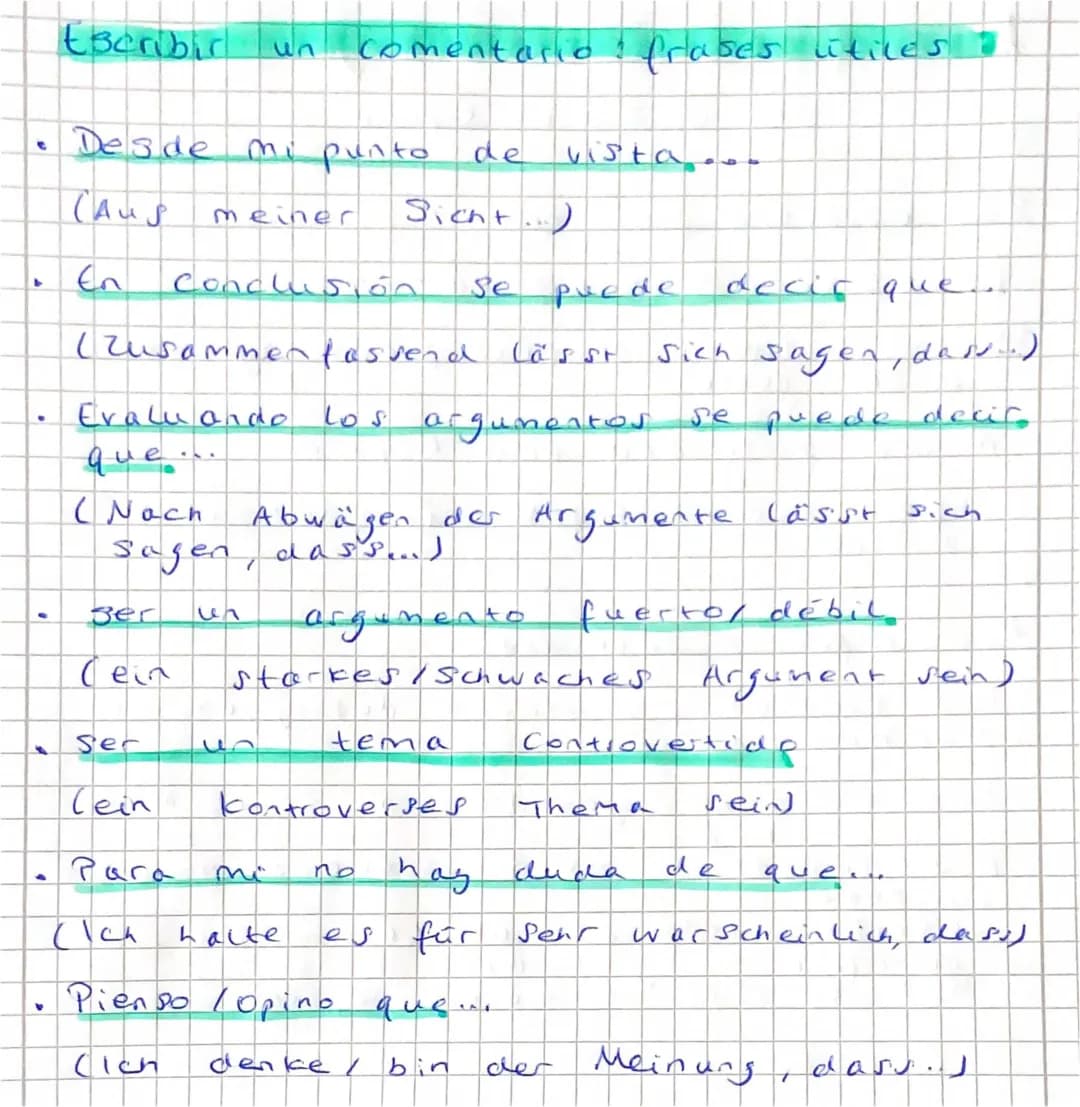 Escribir un comentario: frases útiles
• Desde mi punto de vista....
(Aus meiner Sicht...)
• En conclusión se puede decir que...
(Zusammenfassend lässt sich sagen, dass...)
• Evaluando los argumentos se puede decir
que...
(Nach Abwägen der Argumente lässt sich
sagen, dass...)
• ser un argumento fuerto/débil
(ein starkes/schwaches Argument sein)
• ser un tema controvertido
(ein kontroverses Thema sein)
• Para mi no hay duda de que...
(Ich halte es für sehr warscheinlich, dass)
• Pienso/opino que...
(Ich denke/bin der Meinung, dass..)